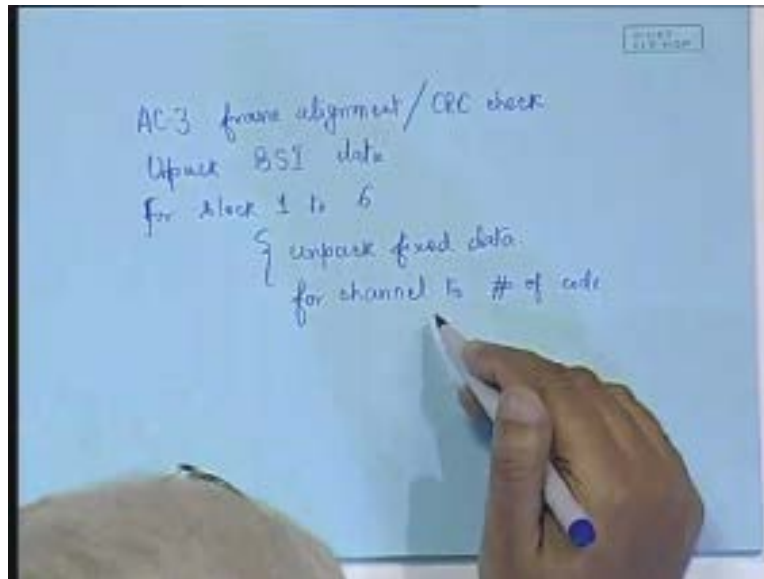 AC-3 frame alignment/CRC check
Unpack BSI data
for block 1 to 6
{ unpack fixed data
for channel to # of code